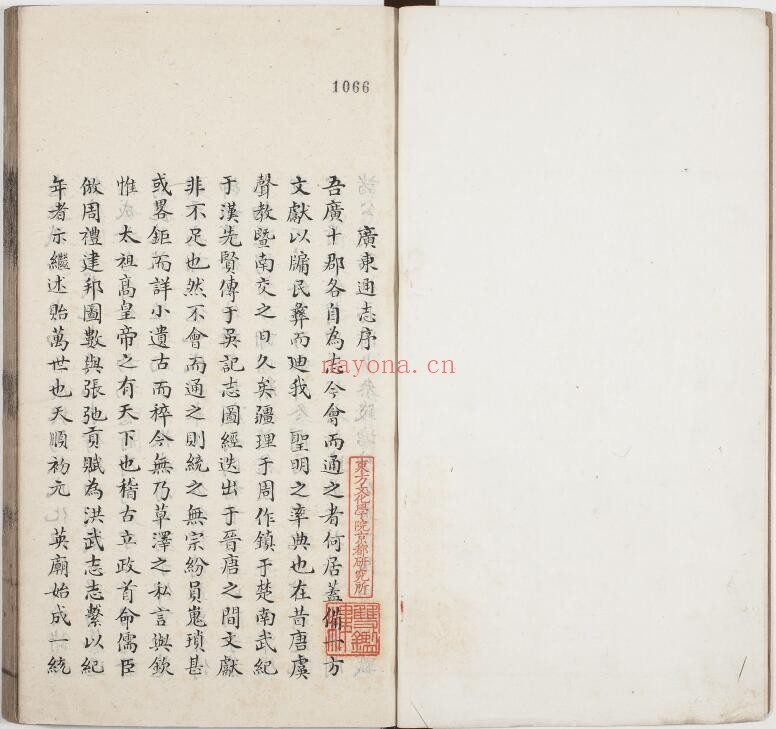 1066
廣東通志序
吾廣十郡各自為志今會而通之者何居蓋備一方
文獻以牖民彝而迪我 聖明之率典也在昔唐虞
聲教暨南交之日久矣疆理于周作鎮于楚南武紀
于漢先賢傳于吳記志圖經迭出于晉唐之間文獻
非不足也然不會而通之則統之無宗紛員嵬瑣甚
或畧鉅而詳小遺古而稡今無乃草澤之私言與欽
惟 太祖高皇帝之有天下也稽古立政首命儒臣
倣周禮建邦圖數與張弛貢賦為洪武志志繫以紀
年者示繼述貽萬世也天順初元 英廟始成一統
東方文化學院京都研究所
nayona.cn